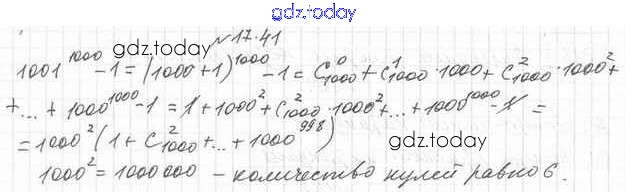 gdz.today
№17.41
gdz.today gdz.today
1001^1000 - 1 = (1000+1)^1000 - 1 = C_1000^0 + C_1000^1 · 1000 + C_1000^2 · 1000^2 +
+ ... + 1000^1000 - 1 = 1 + 1000^2 + C_1000^2 · 1000^2 + ... + 1000^1000 - 1 =
= 1000^2 (1 + C_1000^2 + ... + 1000^998)
gdz.today gdz.today
1000^2 = 1000 000 - количество нулей равно 6.